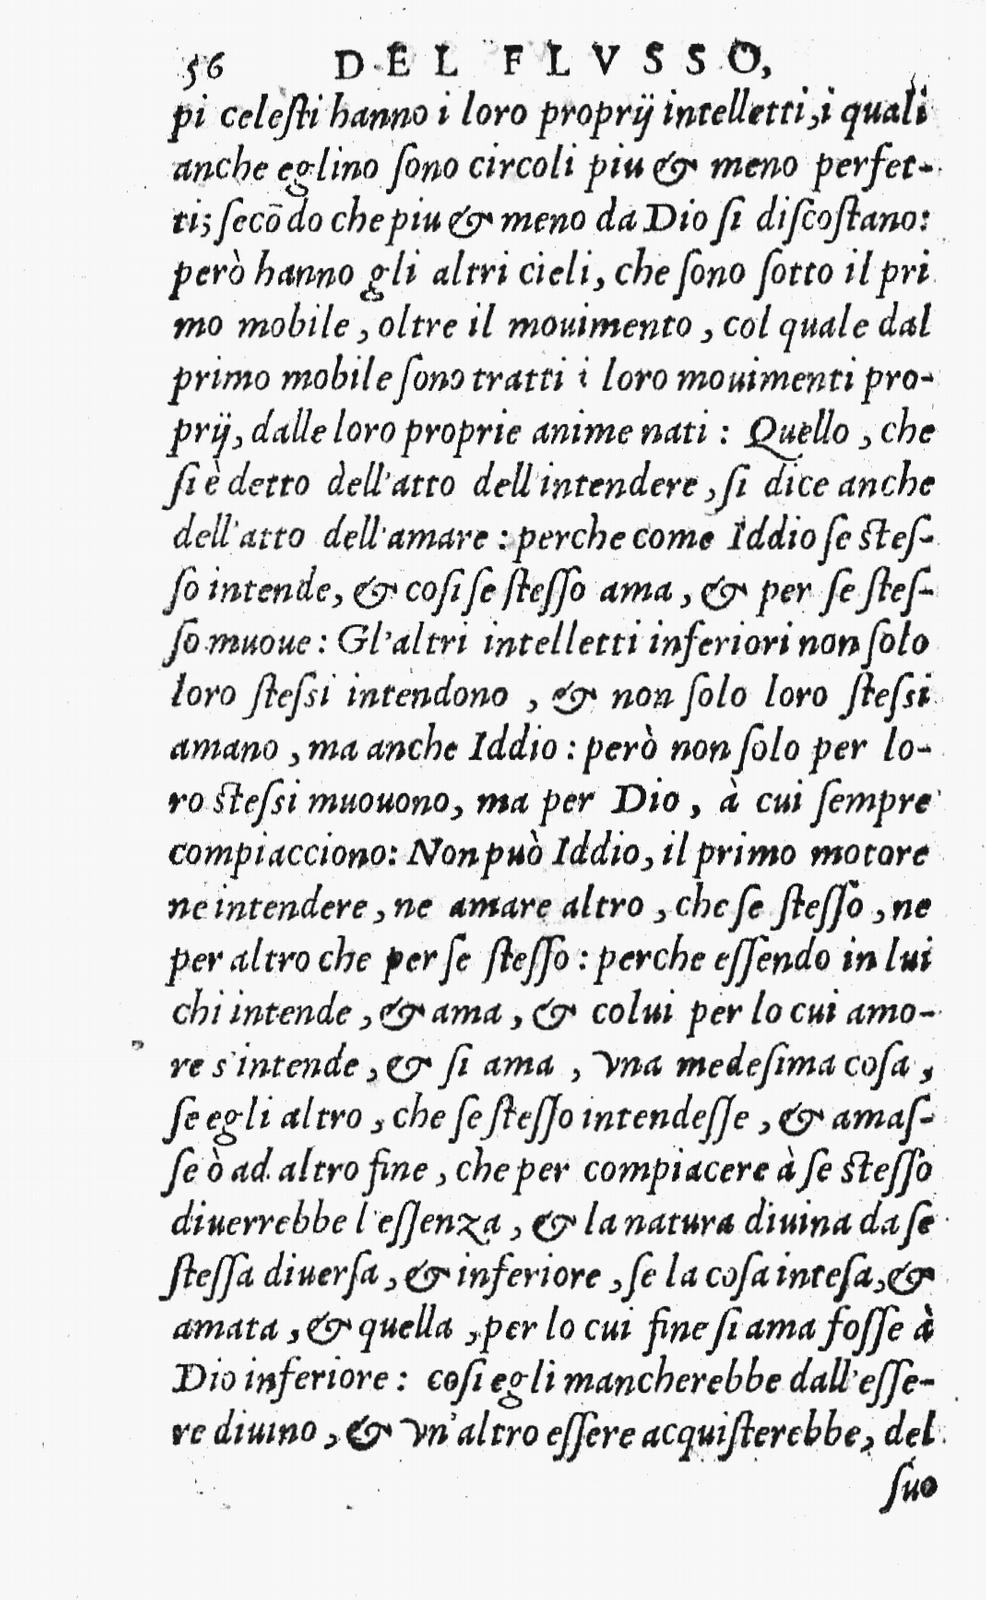 56 DEL FLVSSO,
pi celeſti hanno i loro proprij intelletti, i quali
anche eglino ſono circoli piu & meno perfet-
ti; ſecõdo che piu & meno da Dio ſi diſcoſtano:
però hanno gli altri cieli, che ſono ſotto il pri
mo mobile, oltre il mouimento, col quale dal
primo mobile ſono tratti i loro mouimenti pro-
prij, dalle loro proprie anime nati: Quello, che
ſi è detto dell'atto dell'intendere, ſi dice anche
dell'atto dell'amare: perche come Iddio ſe steſ-
ſo intende, & coſi ſe ſteſſo ama, & per ſe ſteſ-
ſo muoue: Gl'altri intelletti inferiori non ſolo
loro ſteſsi intendono, & non ſolo loro ſteſsi
amano, ma anche Iddio: però non ſolo per lo-
ro steſsi muouono, ma per Dio, à cui ſempre
compiacciono: Non può Iddio, il primo motore
ne intendere, ne amare altro, che ſe ſteſſo, ne
per altro che per ſe ſteſſo: perche eſſendo in lui
chi intende, & ama, & colui per lo cui amo-
re s'intende, & ſi ama, vna medeſima coſa,
ſe egli altro, che ſe ſteſſo intendeſſe, & amaſ-
ſe ò ad altro fine, che per compiacere à ſe steſſo
diuerrebbe l'eſſenza, & la natura diuina da ſe
ſteſſa diuerſa, & inferiore, ſe la coſa inteſa, &
amata, & quella, per lo cui fine ſi ama foſſe à
Dio inferiore: coſi egli mancherebbe dall'eſſe-
re diuino, & vn'altro eſſere acquiſterebbe, del
ſuo